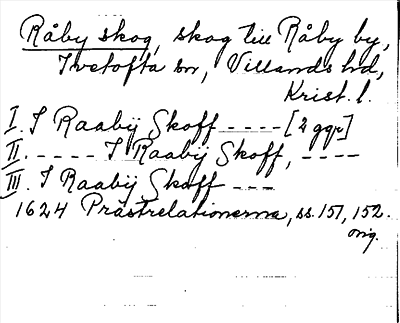 Råby skog, skog till Råby by,
Ivetofta sn, Villands hd,
Krist. l.
I. I Raabÿ Skoff ---- [2 ggr]
II. ---- I Raabÿ Skoff, ----
III. I Raabÿ Skoff ---
1624 Prästrelationerna, ss. 151, 152.
orig.